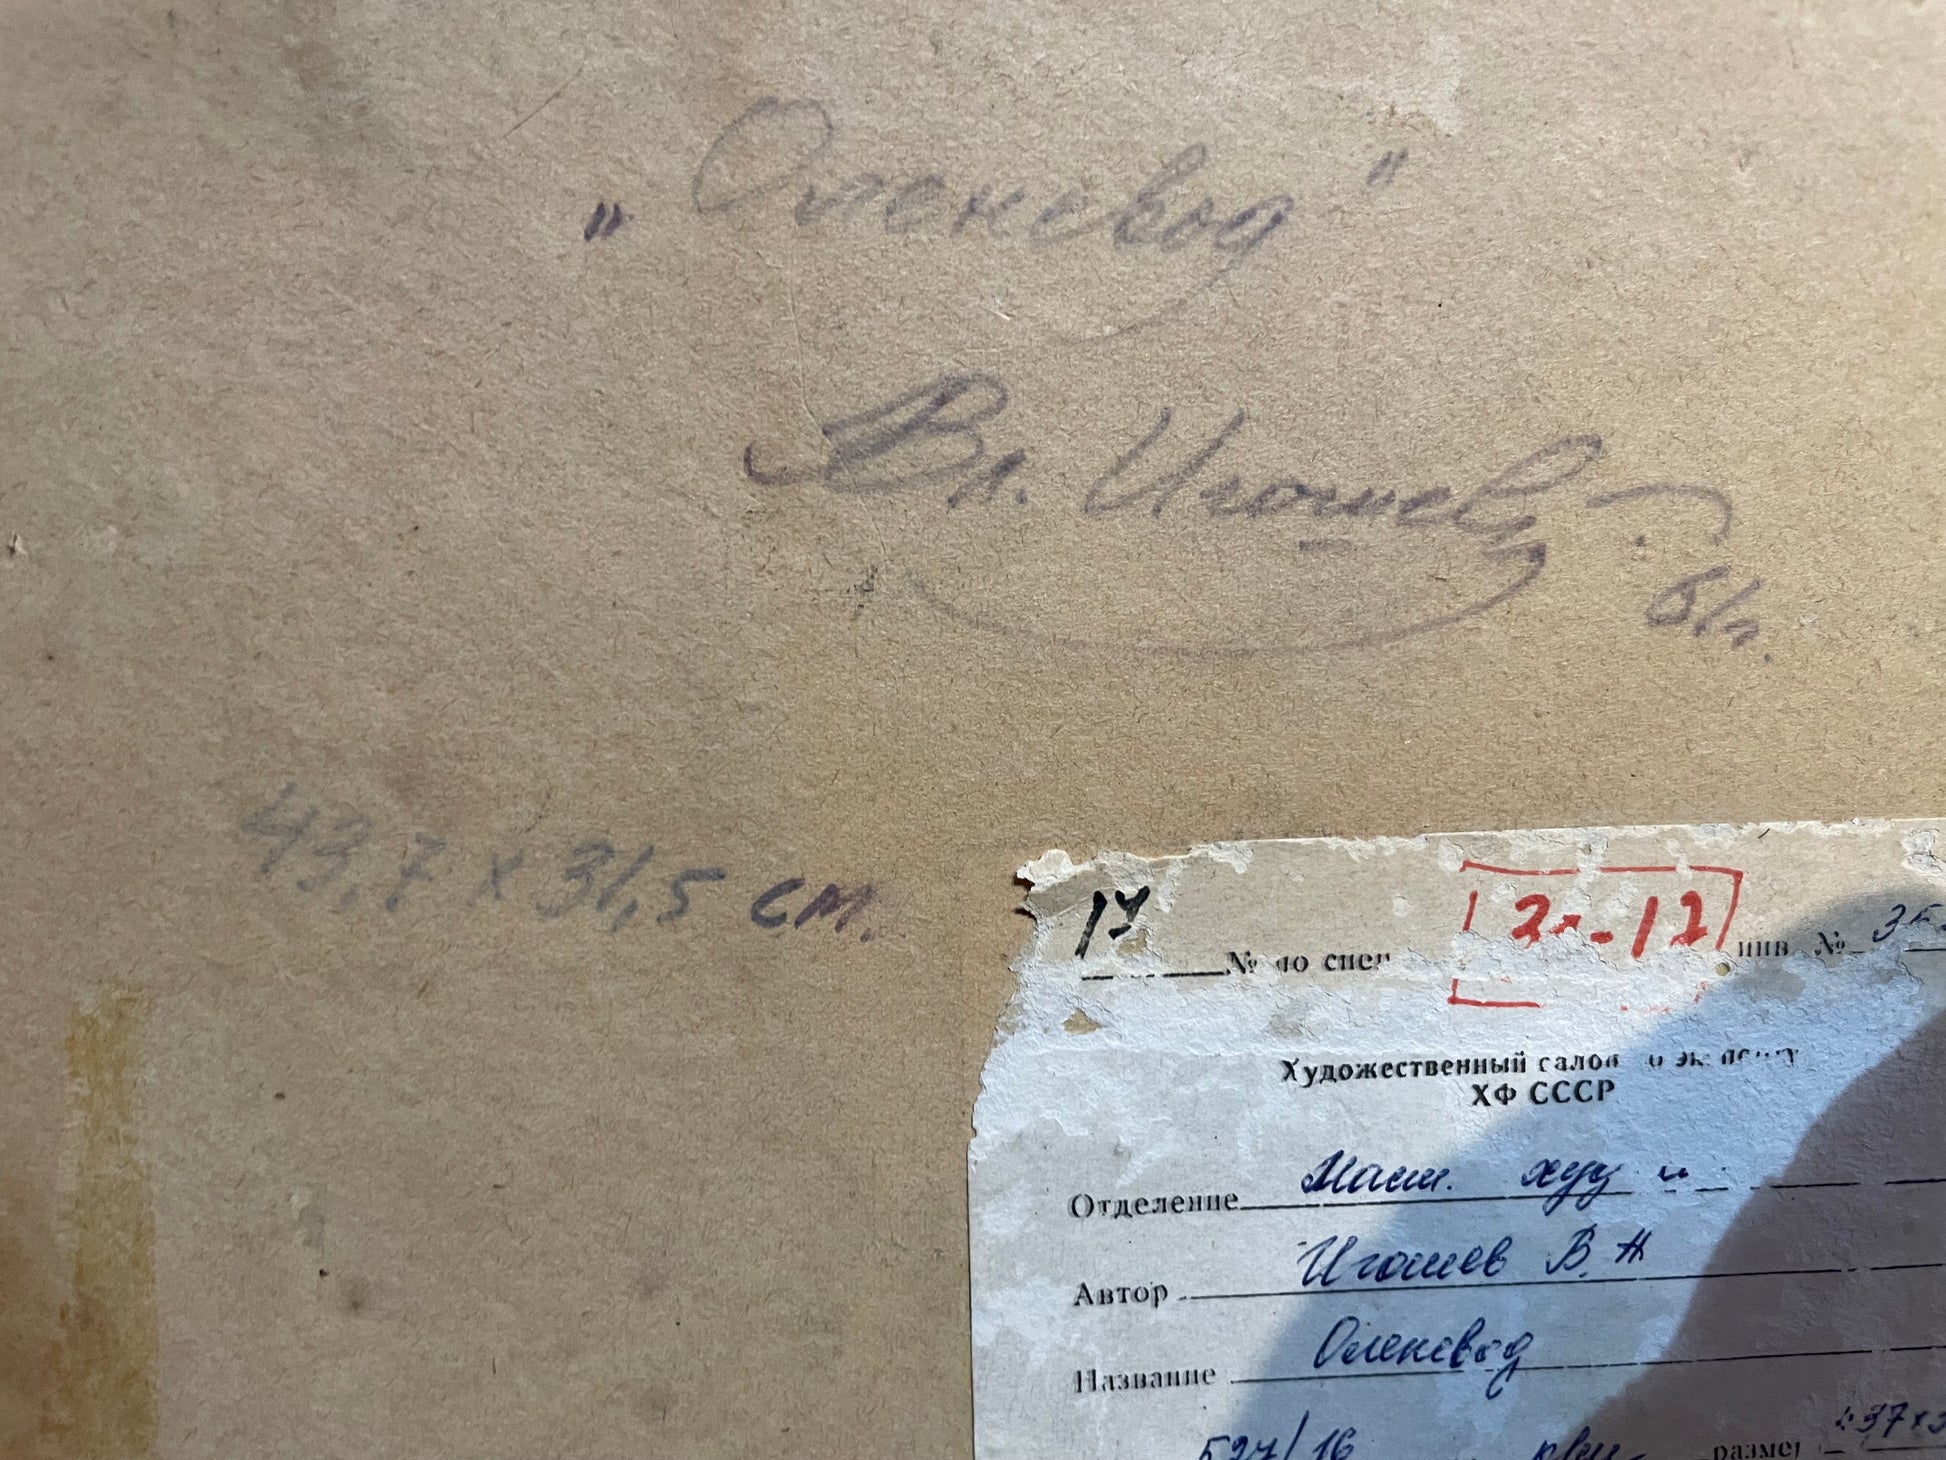 „Оленевод"
Вл. Игошев.
61г.
43,7 х 31,5 см.
17 № по спец 12 инв №
Художественный салон по экспорту
ХФ СССР
Отделение
Автор Игошев В. Н
Название Оленевод
527/16 размер 437х3